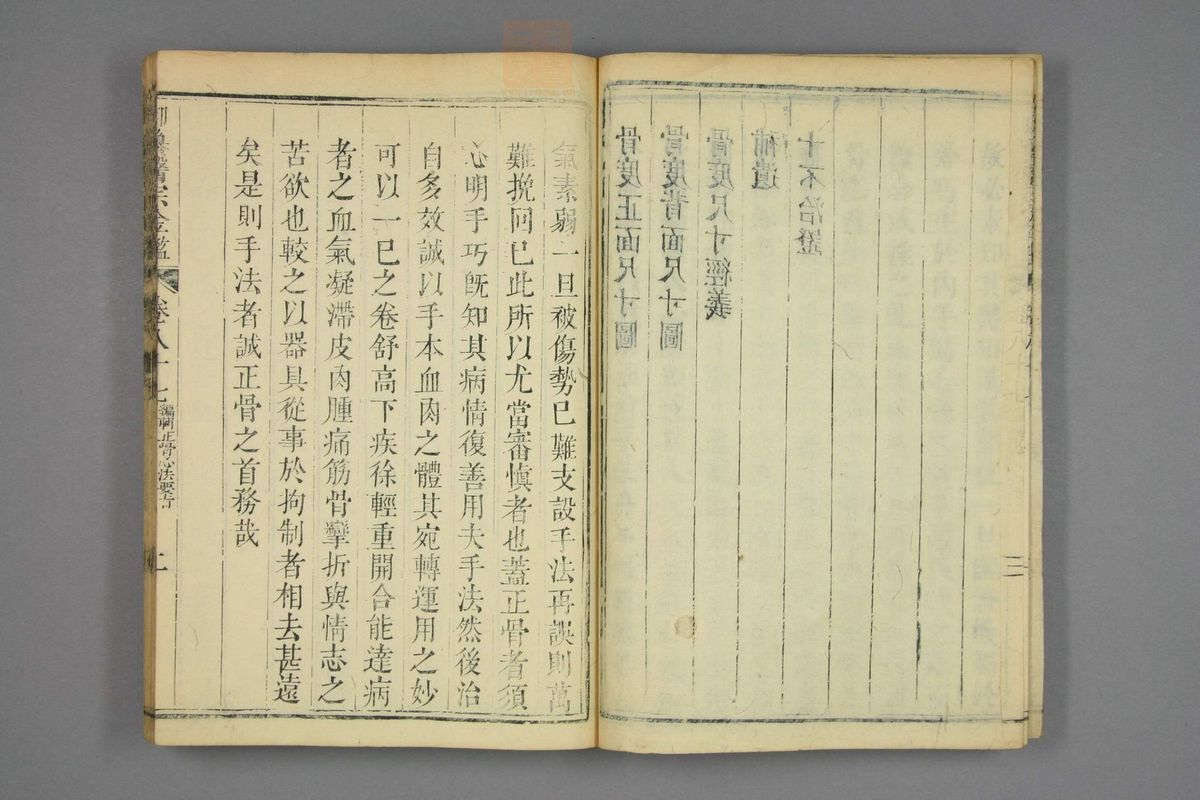 骨度正面尺寸圖
骨度背面尺寸圖
骨度尺寸經義
補遺
十不治證
三
氣素弱一旦被傷勢已難支設手法再誤則萬
難挽回已此所以尤當審愼者也蓋正骨者須
心明手巧旣知其病情復善用夫手法然後治
自多效誠以手本血肉之體其宛轉運用之妙
可以一已之卷舒高下疾徐輕重開合能達病
者之血氣凝滯皮肉腫痛筋骨攣折與情志之
苦欲也較之以器具從事於拘制者相去甚遠
矣是則手法者誠正骨之首務哉
御纂醫宗金鑑 卷八十七 編輯正骨心法要旨